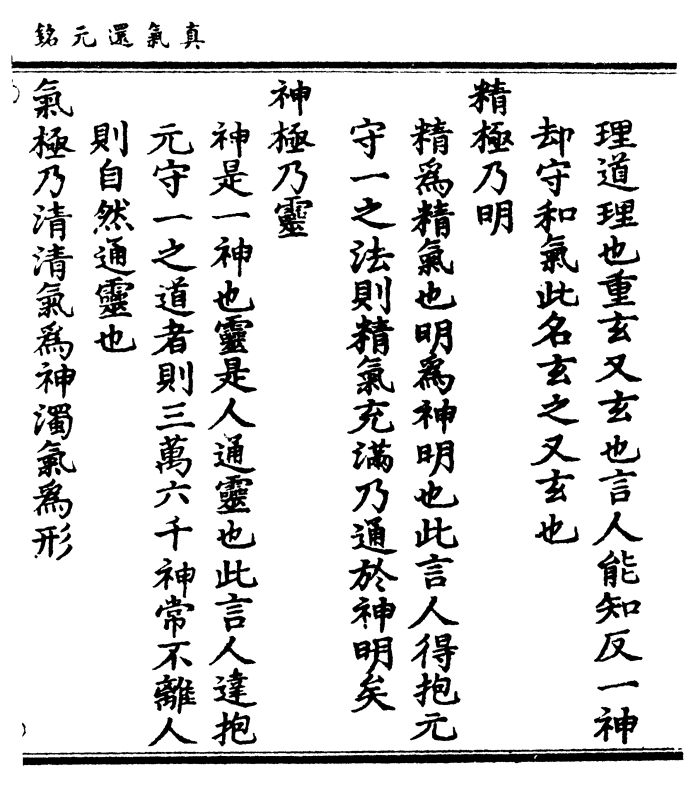 真氣還元銘
理道理也重玄又玄也言人能知反一神
却守和氣此名玄之又玄也
精極乃明
精爲精氣也明爲神明也此言人得抱元
守一之法則精氣充滿乃通於神明矣
神極乃靈
神是一神也靈是人通靈也此言人達抱
元守一之道者則三萬六千神常不離人
則自然通靈也
氣極乃清清氣爲神濁氣爲形